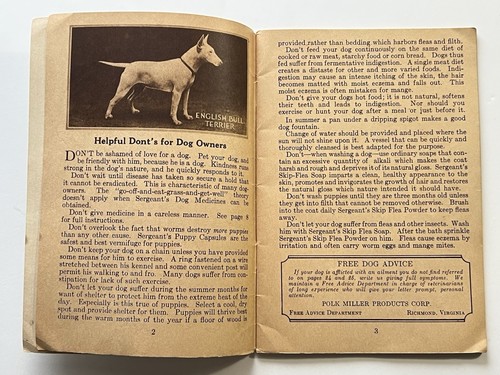 ENGLISH BULL
TERRIER
Helpful Dont's for Dog Owners
DON'T be ashamed of love for a dog. Pet your dog, and
be friendly with him, because he is a dog. Kindness runs
strong in the dog's nature, and he quickly responds to it.
Don't wait until disease has taken so secure a hold that
it cannot be eradicated. This is characteristic of many dog-
owners. The "go-off-and-eat-grass-and-get-well" theory
doesn't apply when Sergeant's Dog Medicines can be
obtained.
Don't give medicine in a careless manner. See page 8
for full instructions.
Don't overlook the fact that worms destroy more puppies
than any other cause. Sergeant's Puppy Capsules are the
safest and best vermifuge for puppies.
Don't keep your dog on a chain unless you have provided
some means for him to exercise. A ring fastened on a wire
stretched between his kennel and some convenient post will
permit his walking to and fro. Many dogs suffer from con-
stipation for lack of such exercise.
Don't let your dog suffer during the summer months for
want of shelter to protect him from the extreme heat of the
day. Especially is this true of puppies. Select a cool, dry
spot and provide shelter for them. Puppies will thrive best
during the warm months of the year if a floor of wood is
2
provided, rather than bedding which harbors fleas and filth.
Don't feed your dog continuously on the same diet of
cooked or raw meat, starchy food or corn bread. Dogs thus
fed suffer from fermentative indigestion. A single meat diet
creates a distaste for other and more varied foods. Indi-
gestion may cause an intense itching of the skin, the hair
becomes matted with moist eczema and falls out. This
moist eczema is often mistaken for mange.
Don't give your dogs hot food; it is not natural, softens
their teeth and leads to indigestion. Nor should you
exercise or hunt your dog after a meal or just before it.
In summer a pan under a dripping spigot makes a good
dog fountain.
Change of water should be provided and placed where the
sun will not shine upon it. A vessel that can be quickly and
thoroughly cleaned is best adapted for the purpose.
Don't—when washing a dog—use ordinary soaps that con-
tain an excessive quantity of alkali which makes the coat
harsh and rough and deprives it of its natural gloss. Sergeant's
Skip-Flea Soap imparts a clean, healthy appearance to the
skin, promotes and invigorates the growth of hair and restores
the natural gloss which nature intended it should have.
Don't wash puppies until they are three months old unless
they get into filth that cannot be removed otherwise. Brush
into the coat daily Sergeant's Skip Flea Powder to keep fleas
away.
Don't let your dog suffer from fleas and other insects. Wash
him with Sergeant's Skip Flea Soap. After the bath sprinkle
Sergeant's Skip Flea Powder on him. Fleas cause eczema by
irritation and often carry worm eggs and mange mites.
FREE DOG ADVICE
If your dog is afflicted with an ailment you do not find referred
to on pages 44 and 45, write us giving full symptoms. We
maintain a Free Advice Department in charge of veterinarians
of long experience who will give your letter prompt, personal
attention.
POLK MILLER PRODUCTS CORP.
FREE ADVICE DEPARTMENT RICHMOND, VIRGINIA
3